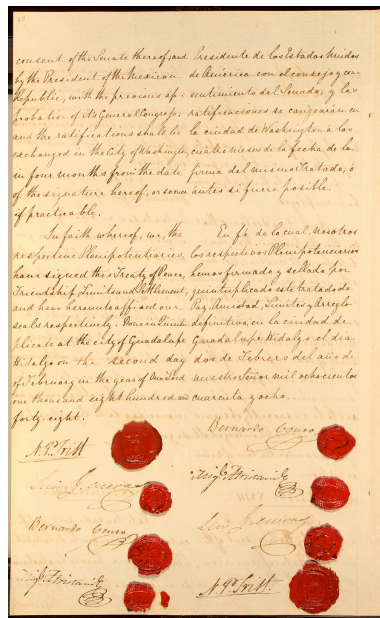 consent of the Senate thereof; and
by the President of the Mexican
Republic, with the previous ap-
probation of its General Congress;
and the ratifications shall be
exchanged in the City of Washington,
in four months from the date
of the signature hereof, or sooner
if practicable.
In faith whereof, we, the
respective Plenipotentiaries,
have signed this Treaty of Peace,
Friendship, Limits and Settlement,
and have hereunto affixed our
seals respectively. Done in Quintu-
plicate at the city of Guadalupe
Hidalgo on the second day
of February in the year of Our Lord
one thousand eight hundred and
forty-eight.
Presidente de los Estados Unidos
de America con el consejo y con-
sentimiento del Senado; y las
ratificaciones se cangearán en
la ciudad de Washington a los
cuatro meses de la fecha de la
firma del mismo Tratado, ó
antes si fuere posible.
En fé de lo cual, nosotros
los respectivos Plenipotenciarios
hemos firmado y sellado por
quintuplicado este tratado de
Paz, Amistad, Limites y Arreglo
definitivo, en la ciudad de
Guadalupe Hidalgo el dia
dos de Febrero del año de
nuestro Señor mil ochocientos
cuarenta y ocho.
N. P. Trist
Luis G. Cuevas
Bernardo Couto
Migl. Atristain
Bernardo Couto
Migl. Atristain
Luis G. Cuevas
N. P. Trist